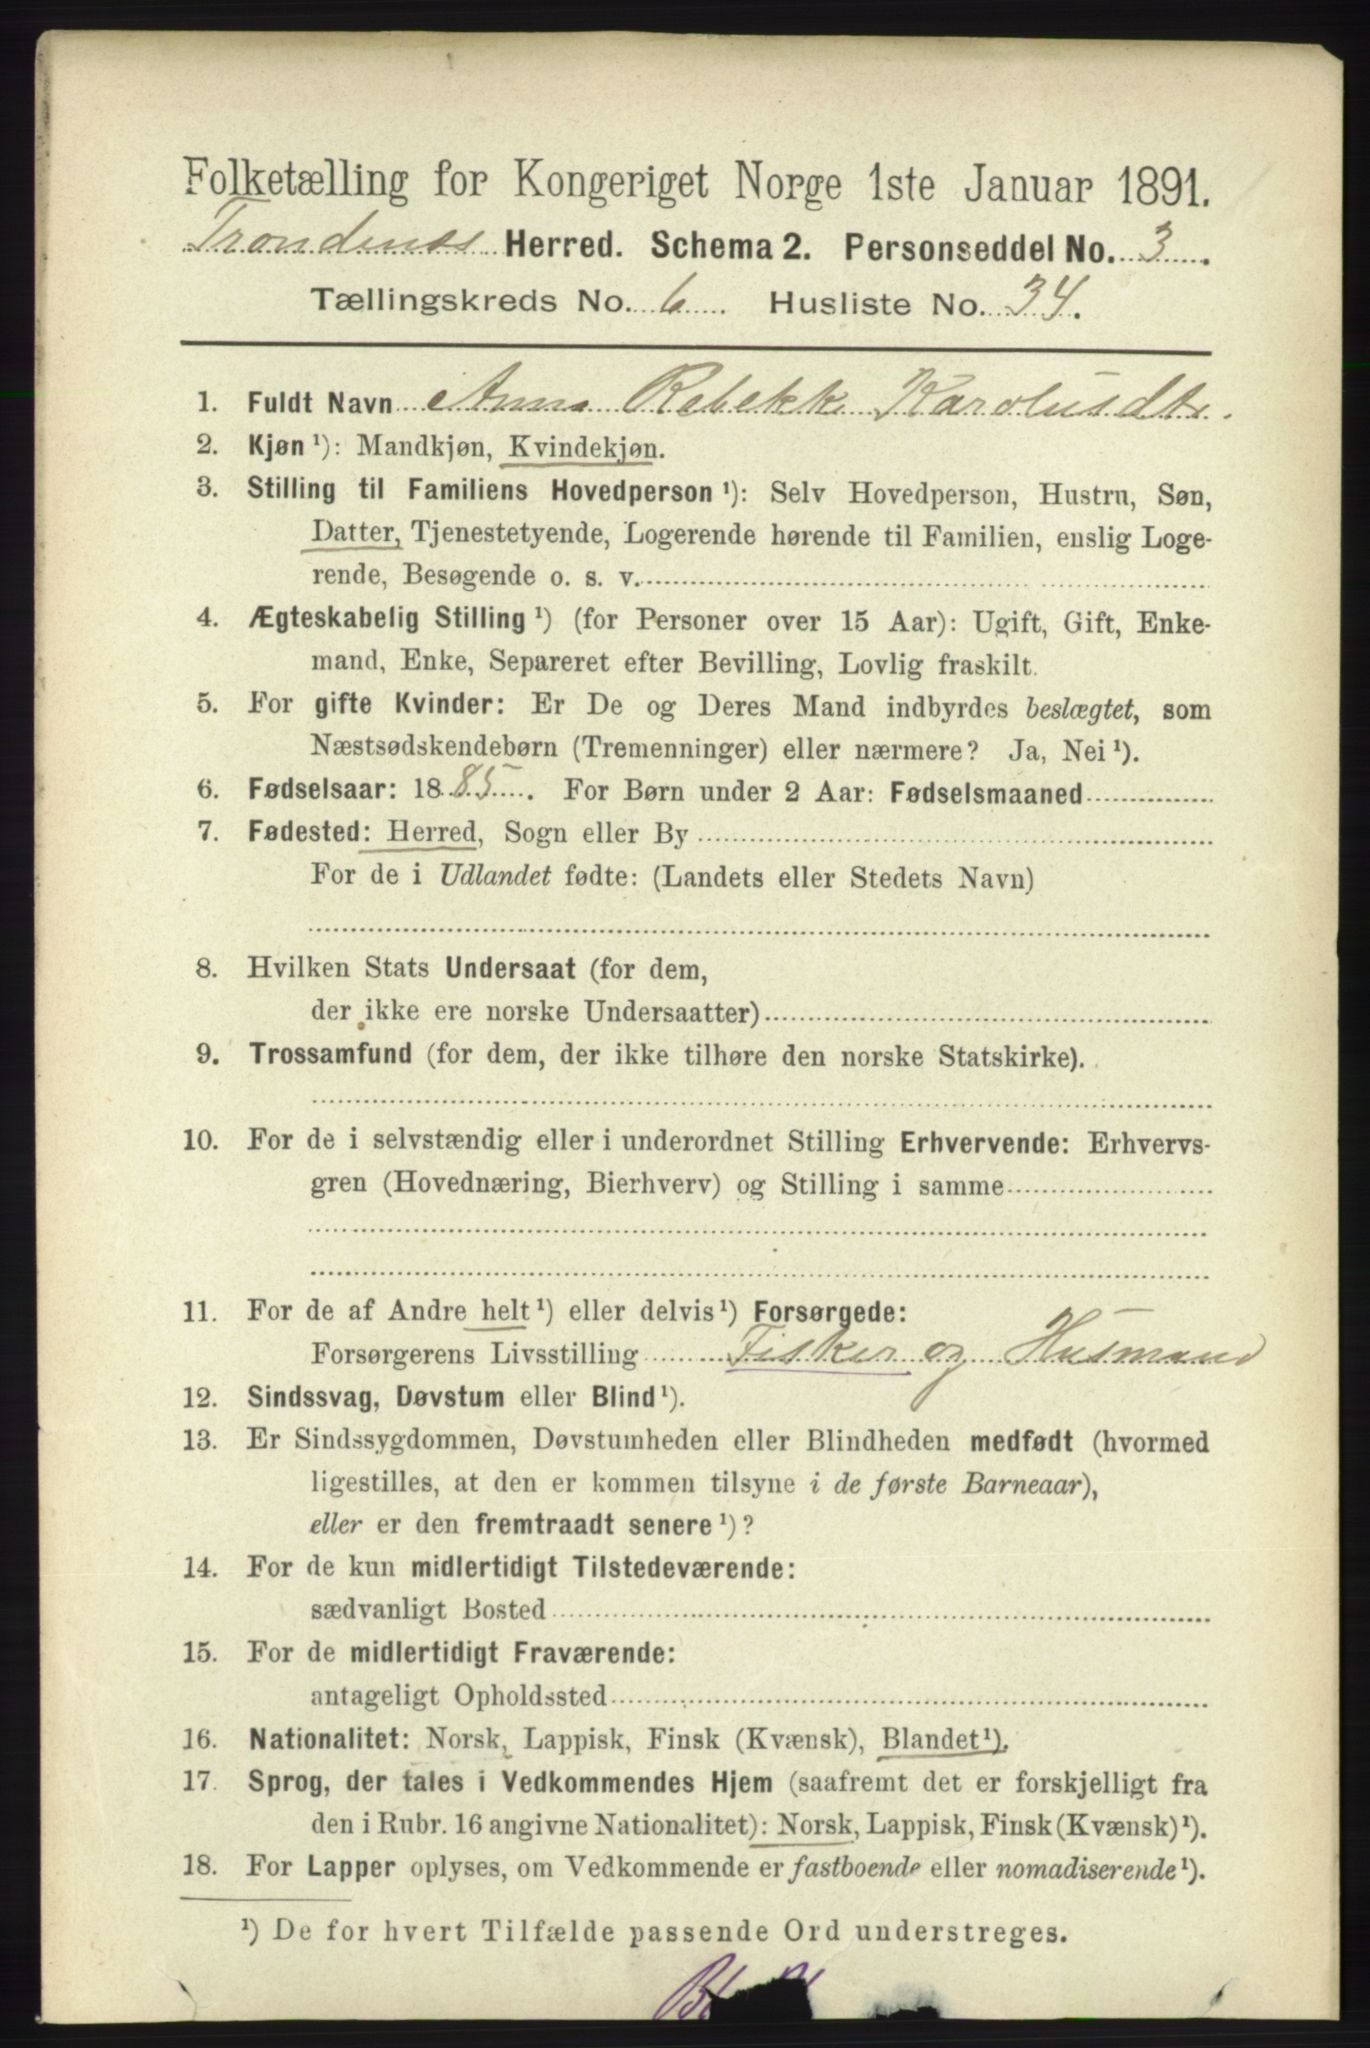 Folketælling for Kongeriget Norge 1ste Januar 1891.
Trondenæs Herred. Schema 2. Personseddel No. 3.
Tællingskreds No. 6. Husliste No. 34.
1. Fuldt Navn Anna Rebekka Karolusdtr.
2. Kjøn ¹): Mandkjøn, Kvindekjøn.
3. Stilling til Familiens Hovedperson ¹): Selv Hovedperson, Hustru, Søn,
Datter, Tjenestetyende, Logerende hørende til Familien, enslig Loge-
rende, Besøgende o. s. v.
4. Ægteskabelig Stilling ¹) (for Personer over 15 Aar): Ugift, Gift, Enke-
mand, Enke, Separeret efter Bevilling, Lovlig fraskilt.
5. For gifte Kvinder: Er De og Deres Mand indbyrdes beslægtet, som
Næstsødskendebørn (Tremenninger) eller nærmere? Ja, Nei ¹).
6. Fødselsaar: 1885. For Børn under 2 Aar: Fødselsmaaned
7. Fødested: Herred, Sogn eller By
For de i Udlandet fødte: (Landets eller Stedets Navn)
8. Hvilken Stats Undersaat (for dem,
der ikke ere norske Undersaatter)
9. Trossamfund (for dem, der ikke tilhøre den norske Statskirke).
10. For de i selvstændig eller i underordnet Stilling Erhvervende: Erhvervs-
gren (Hovednæring, Bierhverv) og Stilling i samme
11. For de af Andre helt ¹) eller delvis ¹) Forsørgede:
Forsørgerens Livsstilling Fisker og Husmand
12. Sindssvag, Døvstum eller Blind ¹).
13. Er Sindssygdommen, Døvstumheden eller Blindheden medfødt (hvormed
ligestilles, at den er kommen tilsyne i de første Barneaar),
eller er den fremtraadt senere ¹)?
14. For de kun midlertidigt Tilstedeværende:
sædvanligt Bosted
15. For de midlertidigt Fraværende:
antageligt Opholdssted
16. Nationalitet: Norsk, Lappisk, Finsk (Kvænsk), Blandet ¹).
17. Sprog, der tales i Vedkommendes Hjem (saafremt det er forskjelligt fra
den i Rubr. 16 angivne Nationalitet): Norsk, Lappisk, Finsk (Kvænsk) ¹).
18. For Lapper oplyses, om Vedkommende er fastboende eller nomadiserende ¹).
¹) De for hvert Tilfælde passende Ord understreges.